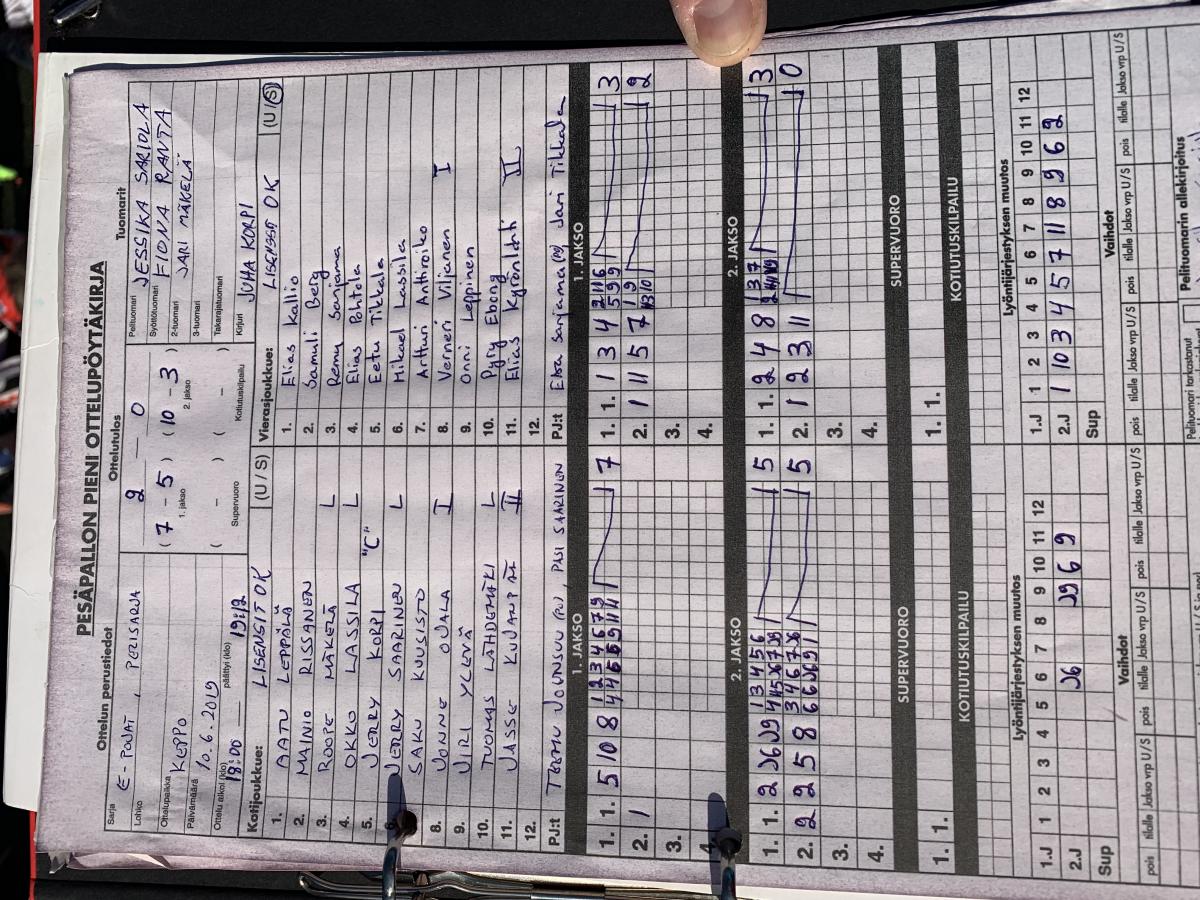 PESÄPALLON PIENI OTTELUPÖYTÄKIRJA
Ottelun perustiedot
Sarja E-POJAT, PERUSSARJA
Lohko
Ottelupaikka KEPPO
Päivämäärä 10.6.2019
Ottelu alkoi (klo) 18:00 päättyi (klo) 19:12
Ottelutulos
2 — 0
( 7 - 5 ) ( 10 - 3 )
1. jakso 2. jakso
( - ) ( - )
Supervuoro Kotiutuskilpailu
Tuomarit
Pelituomari JESSIKA SARIOLA
Syöttötuomari FIONA RANTA
2-tuomari JARI MÄKELÄ
3-tuomari
Takarajatuomari
Kirjuri JUHA KORPI
Kotijoukkue: LISENSSIT OK (U / S)
1. AATU LEPPÄLÄ
2. MAINIO RISSANEN
3. ROOPE MÄKELÄ L
4. OKKO LASSILA L
5. JERRY KORPI "C"
6. JERRY SAARINEN L
SAKU KUUSISTO
8. JONNE OJALA I
9. JIRI YLEVÄ
10. TUOMAS LÄHDEMÄKI L
11. JASSE II
12.
PJ:t TEEMU JOUNSUU (PJ), PASI SAARINEN
Vierasjoukkue: LISENSSIT OK (U / S)
1. Elias Kallio
2. Samuli Berg
3. Remy Sarjama
4. Elias Pohtola
5. Eetu Tikkala
6. Mikael Lassila
7. Artturi Anttiroiko
8. Verneri Viljanen I
9. Onni Leppinen
10. Pyry Ebong
11. Elias Kyrönlahti II
12.
PJ:t Esa Sarjama (PJ) Jani Tikkala
1. JAKSO
1. 1. 5 10 8 7
2. 1
3.
4.
1. JAKSO
1. 1. 1 3 4 3
2. 1 11 5 7 2
3.
4.
2. JAKSO
1. 1. 2 5
2. 2 2 5 8 5
3.
4.
2. JAKSO
1. 1. 2 4 8 3
2. 1 2 3 11 0
3.
4.
SUPERVUORO
1. 1.
SUPERVUORO
1. 1.
KOTIUTUSKILPAILU
KOTIUTUSKILPAILU
Lyöntijärjestyksen muutos
1 2 3 4 5 6 7 8 9 10 11 12
1.J
2.J J6 J9 6 9
Sup
Lyöntijärjestyksen muutos
1 2 3 4 5 6 7 8 9 10 11 12
1.J
2.J 1 10 3 4 5 7 11 8 9 6 2
Sup
Vaihdot
pois tilalle Jakso vrp U/S pois tilalle Jakso vrp U/S pois tilalle Jakso vrp U/S
Vaihdot
pois tilalle Jakso vrp U/S pois tilalle Jakso vrp U/S pois tilalle Jakso vrp U/S
Pelituomari tarkastanut
Pelituomarin allekirjoitus